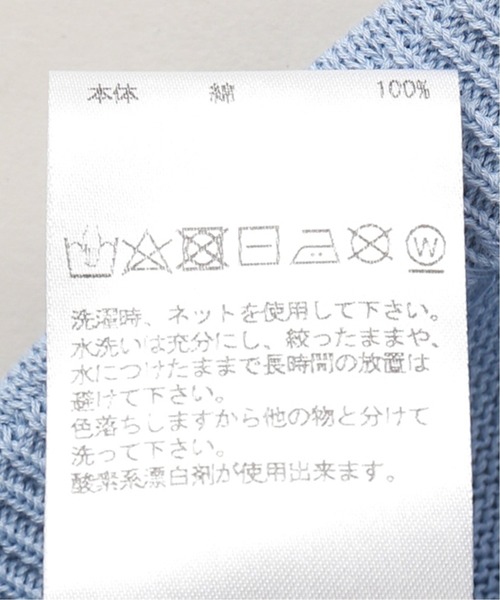 本体 綿 100%
W
洗濯時、ネットを使用して下さい。
水洗いは充分にし、絞ったままや、
水につけたままで長時間の放置は
避けて下さい。
色落ちしますから他の物と分けて
洗って下さい。
酸素系漂白剤が使用出来ます。